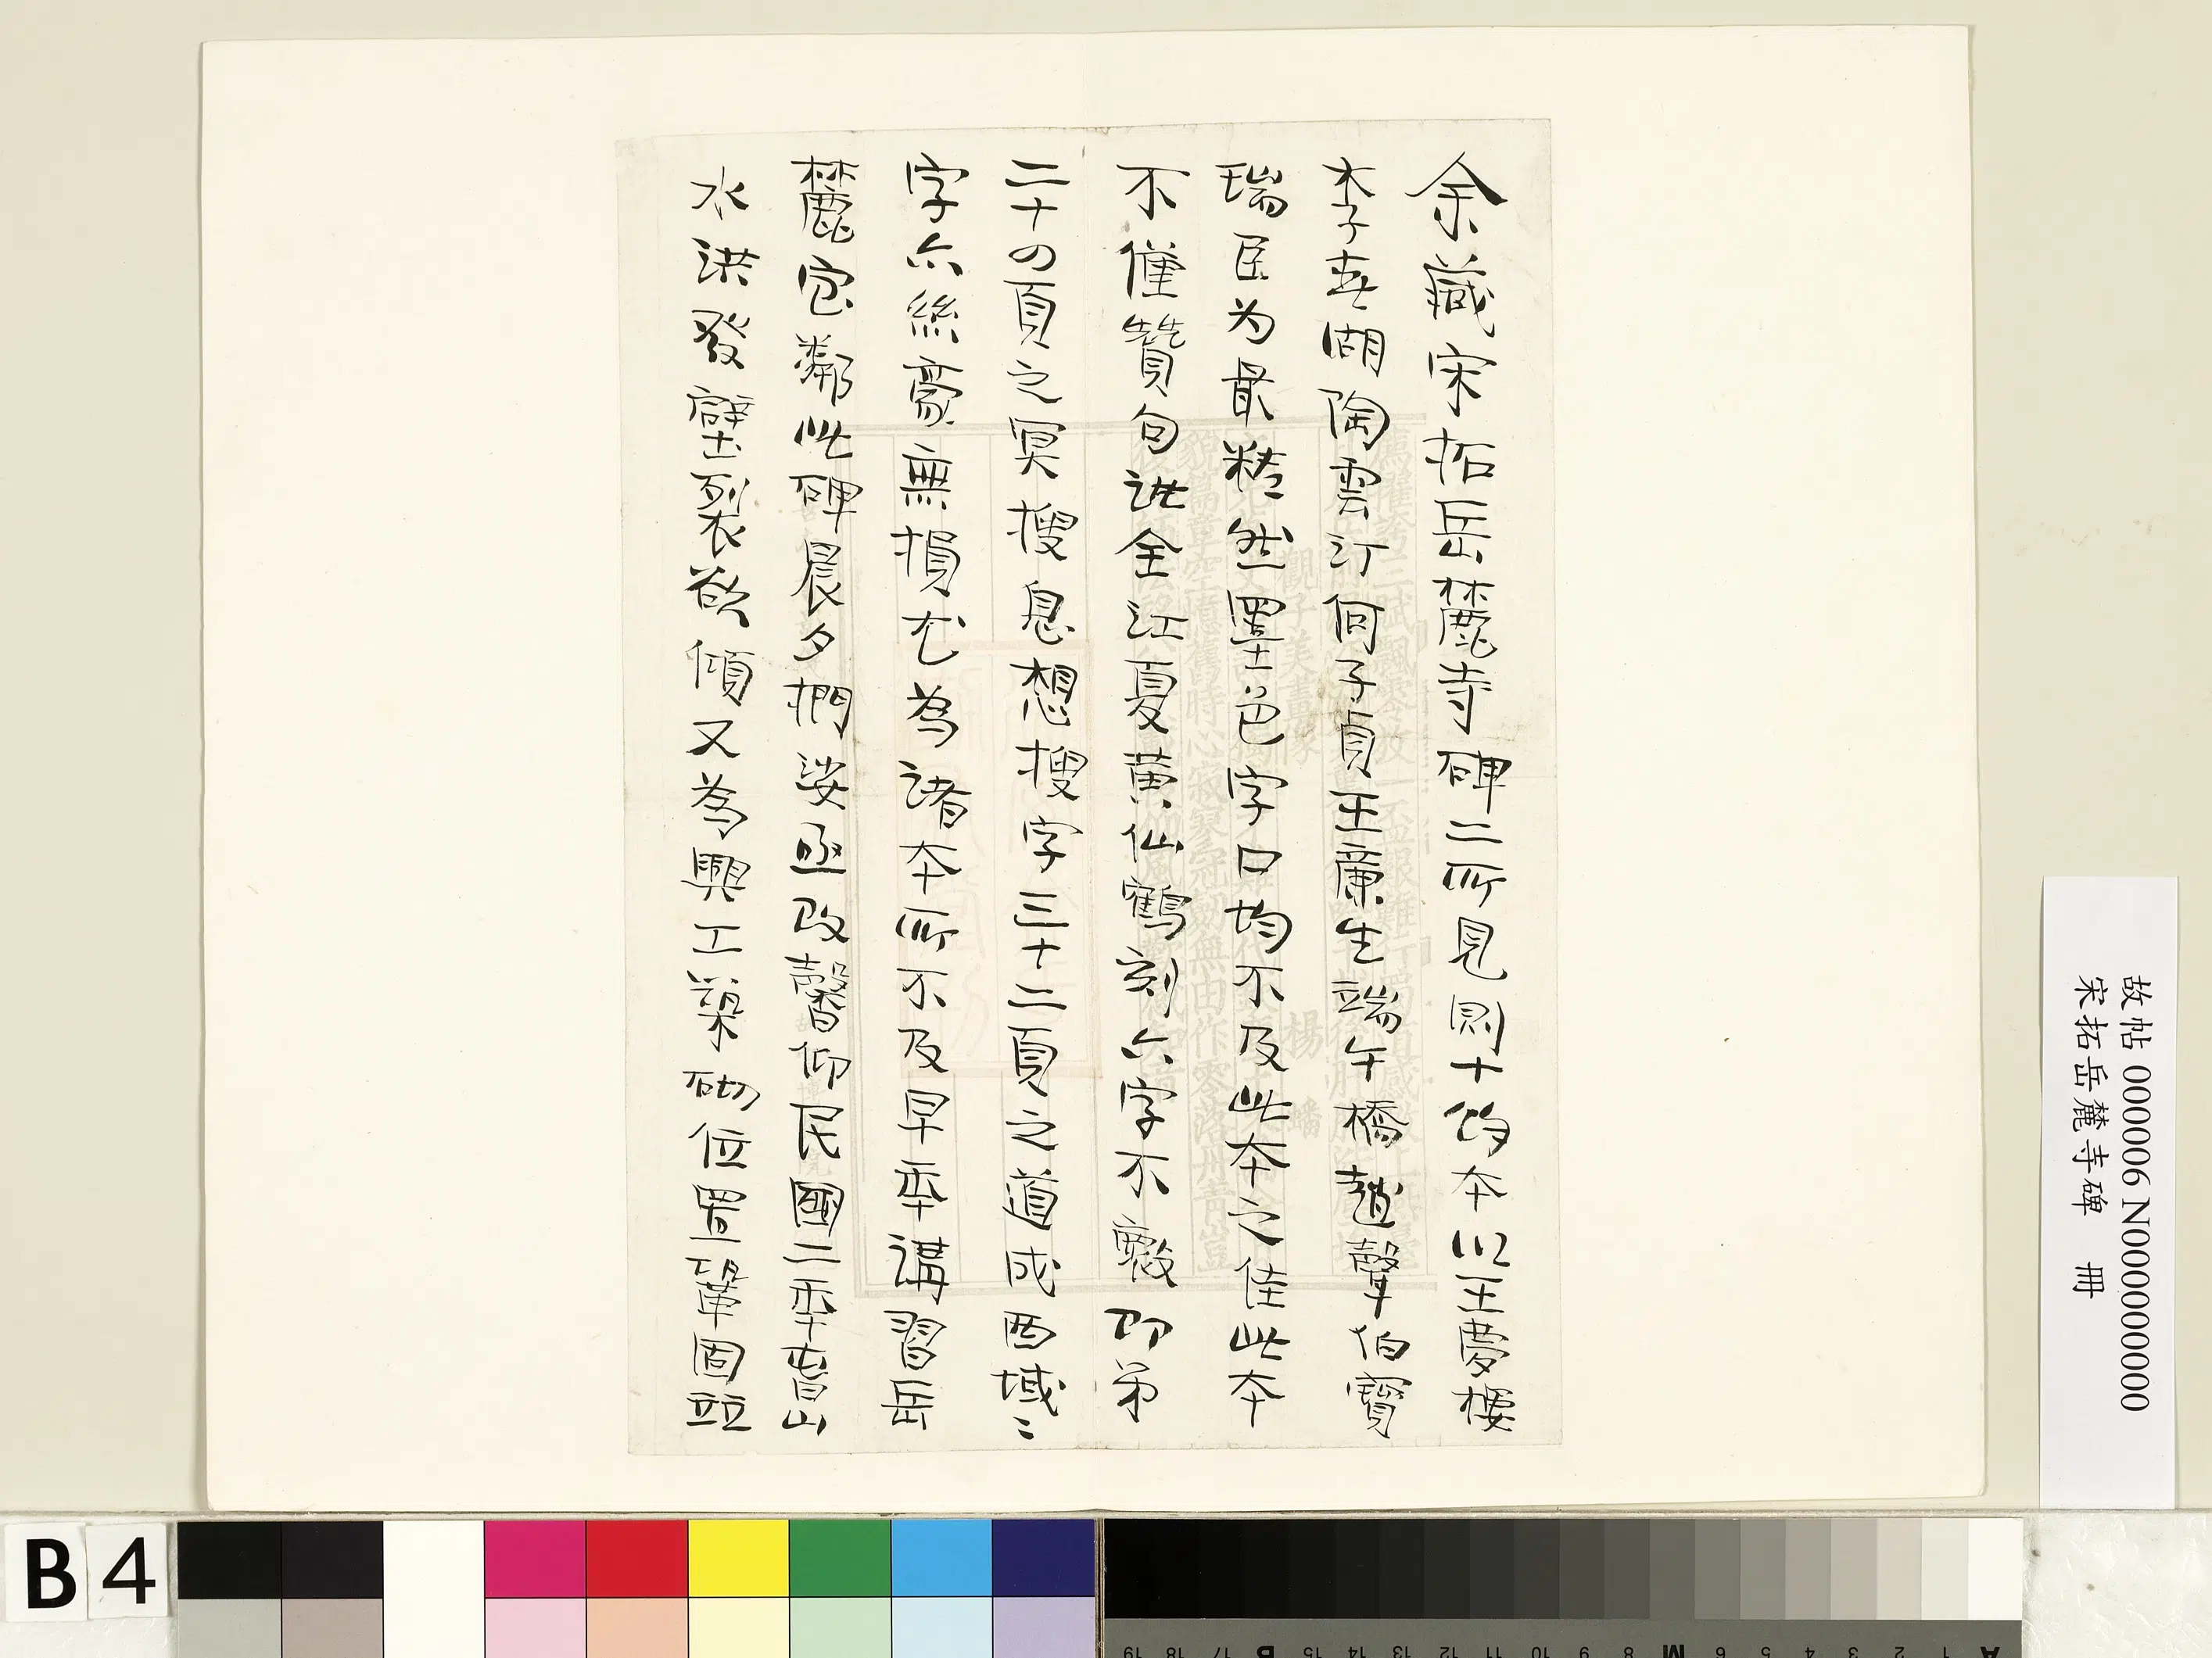 余藏宋拓岳麓寺碑二所見則十餘本以王夢樓
李春湖陶雲汀何子貞王廉生端午橋趙聲伯寶
瑞臣为最精然墨色字口均不及此本之佳此本
不僅贊句訛全江夏黄仙鶴刻六字不壞即第
二十四頁之冥搜息想搜字三十二頁之道成西域二
字亦絲豪無損尤為諸本所不及早年講習岳
麓宅鄰此碑晨夕捫娑亟致馨仰民國二年耆山
水洪發壁裂欲傾又為興工築砌位置鞏固並
故帖 000006 N000000000
宋拓岳麓寺碑 冊
B 4
19 18 17 B 15 14 13 12 11 10 9 8 M 6 5 4 3 2 1 A